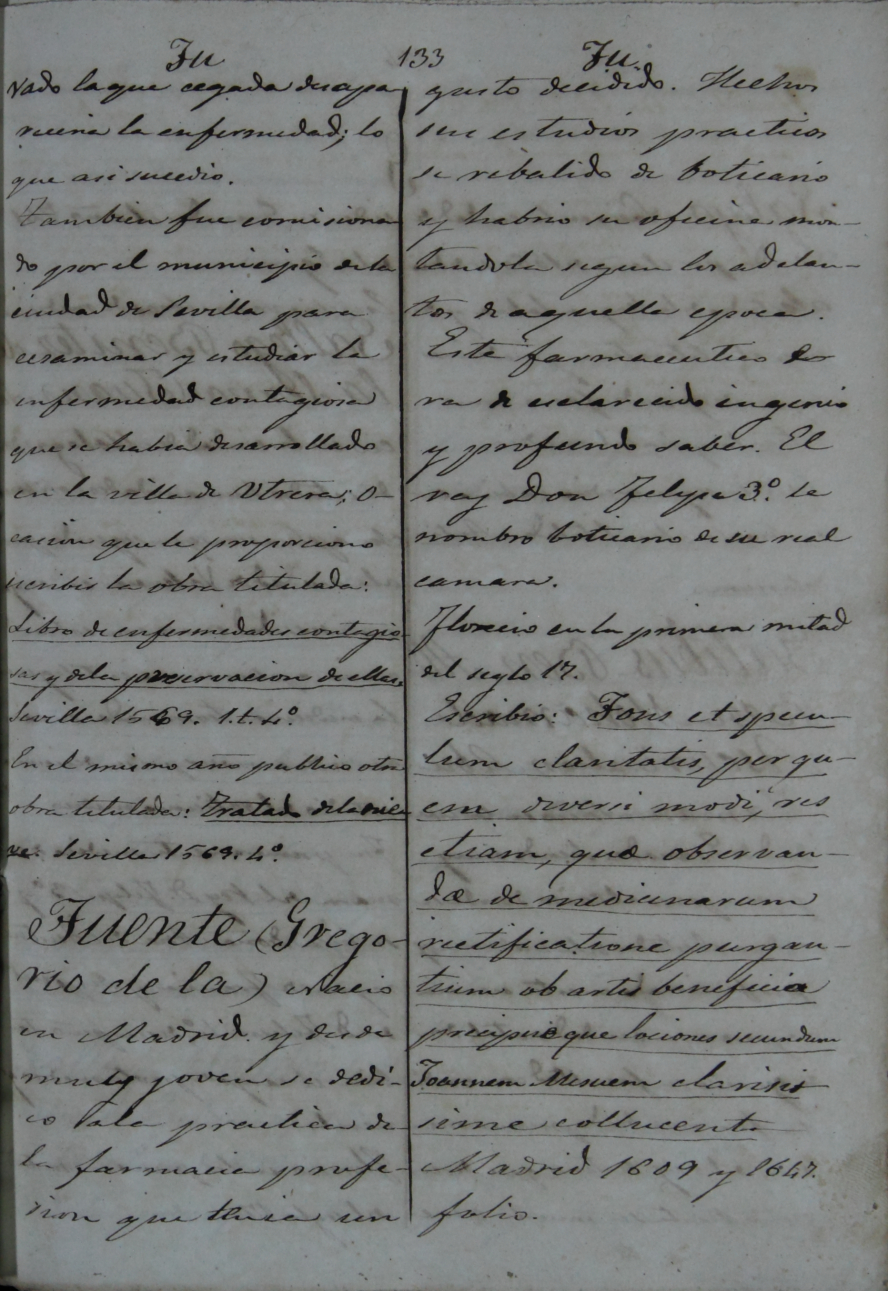 Fu 133 Fu.
vado la que cegada desapa
receria la enfermedad; lo
que asi sucedio.
Tambien fue comisiona
do por el municipio de la
ciudad de Sevilla para
ecsaminar y estudiar la
enfermedad contagiosa
que se habia desarrollado
en la villa de Utrera; o-
casion que le proporciono
escribir la obra titulada:
Libro de enfermedades contagio-
sas y de la preservacion de ellas.
Sevilla 1569. 1.t. 4º.
En el mismo año publico otra
obra titulada: Tratado de la nie
ve. Sevilla 1569. 4º.
Fuente (Grego-
rio de la) nacio
en Madrid. y desde
muy joven se dedi-
co a la practica de
la farmacia profe-
sion que tenia un
gusto decidido. Hechos
sus estudios practicos
se rebalido de boticario
y habrio su oficina mon-
tandola segun los adelan-
tos de aquella epoca.
Este farmaceutico e
ra de esclarecido ingenio
y profundo saber. El
rey Don Felipe 3º. le
nombro boticario de su real
camara.
Florecio en la primera mitad
del siglo 17.
Escribio: Fons et specu-
lum claritatis, per qu-
em diversi modi, res
etiam, quæ observan-
dæ de medicinarum
rectificatione purgan-
tium ob artis beneficia
precipue que lociones secundum
Joannem Mesuem claris
sime collucent.
Madrid 1609 y 1647.
folio.